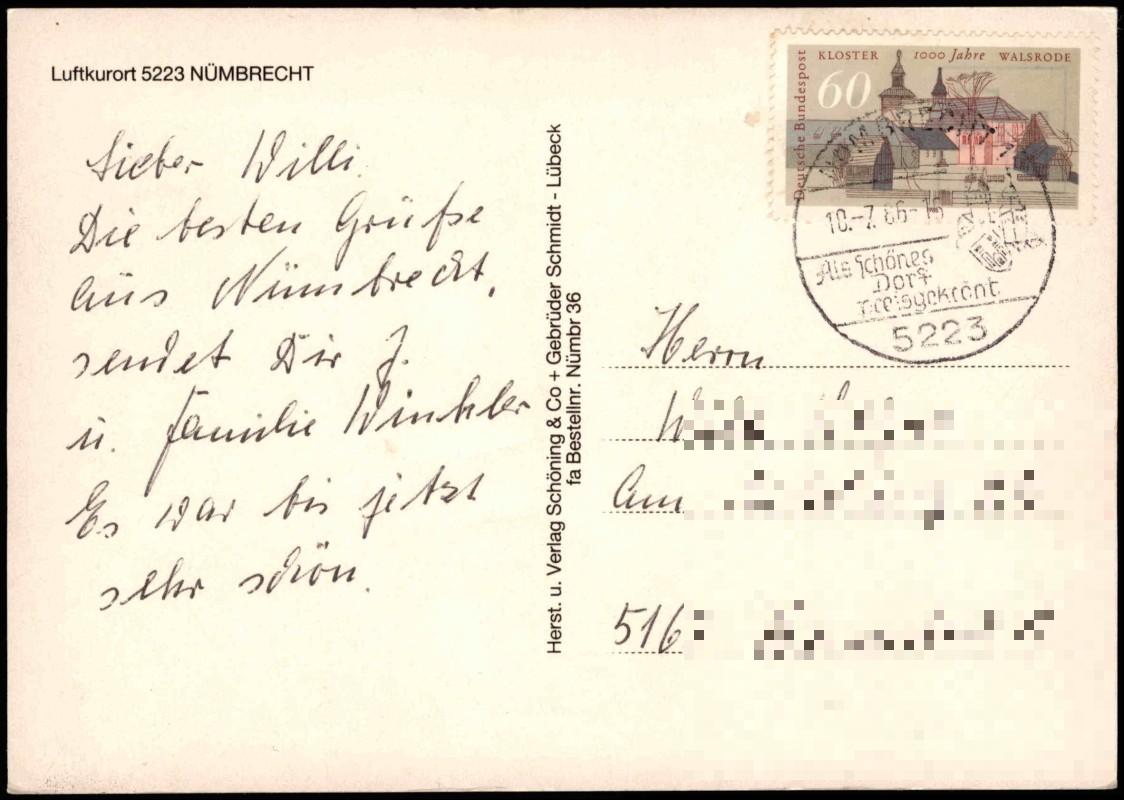 Luftkurort 5223 NÜMBRECHT
Lieber Willi.
Die besten Grüße
aus Nümbrecht,
sendet Dir J.
u. Familie Winkler
Es war bis jetzt
sehr schön.
Herst. u. Verlag Schöning & Co + Gebrüder Schmidt - Lübeck
fa Bestellnr. Nümbr 36
KLOSTER 1000 Jahre WALSRODE
60
Deutsche Bundespost
10.-7.86-15
Als schönes
Dorf
preisgekrönt
5223
Herrn
Am
516